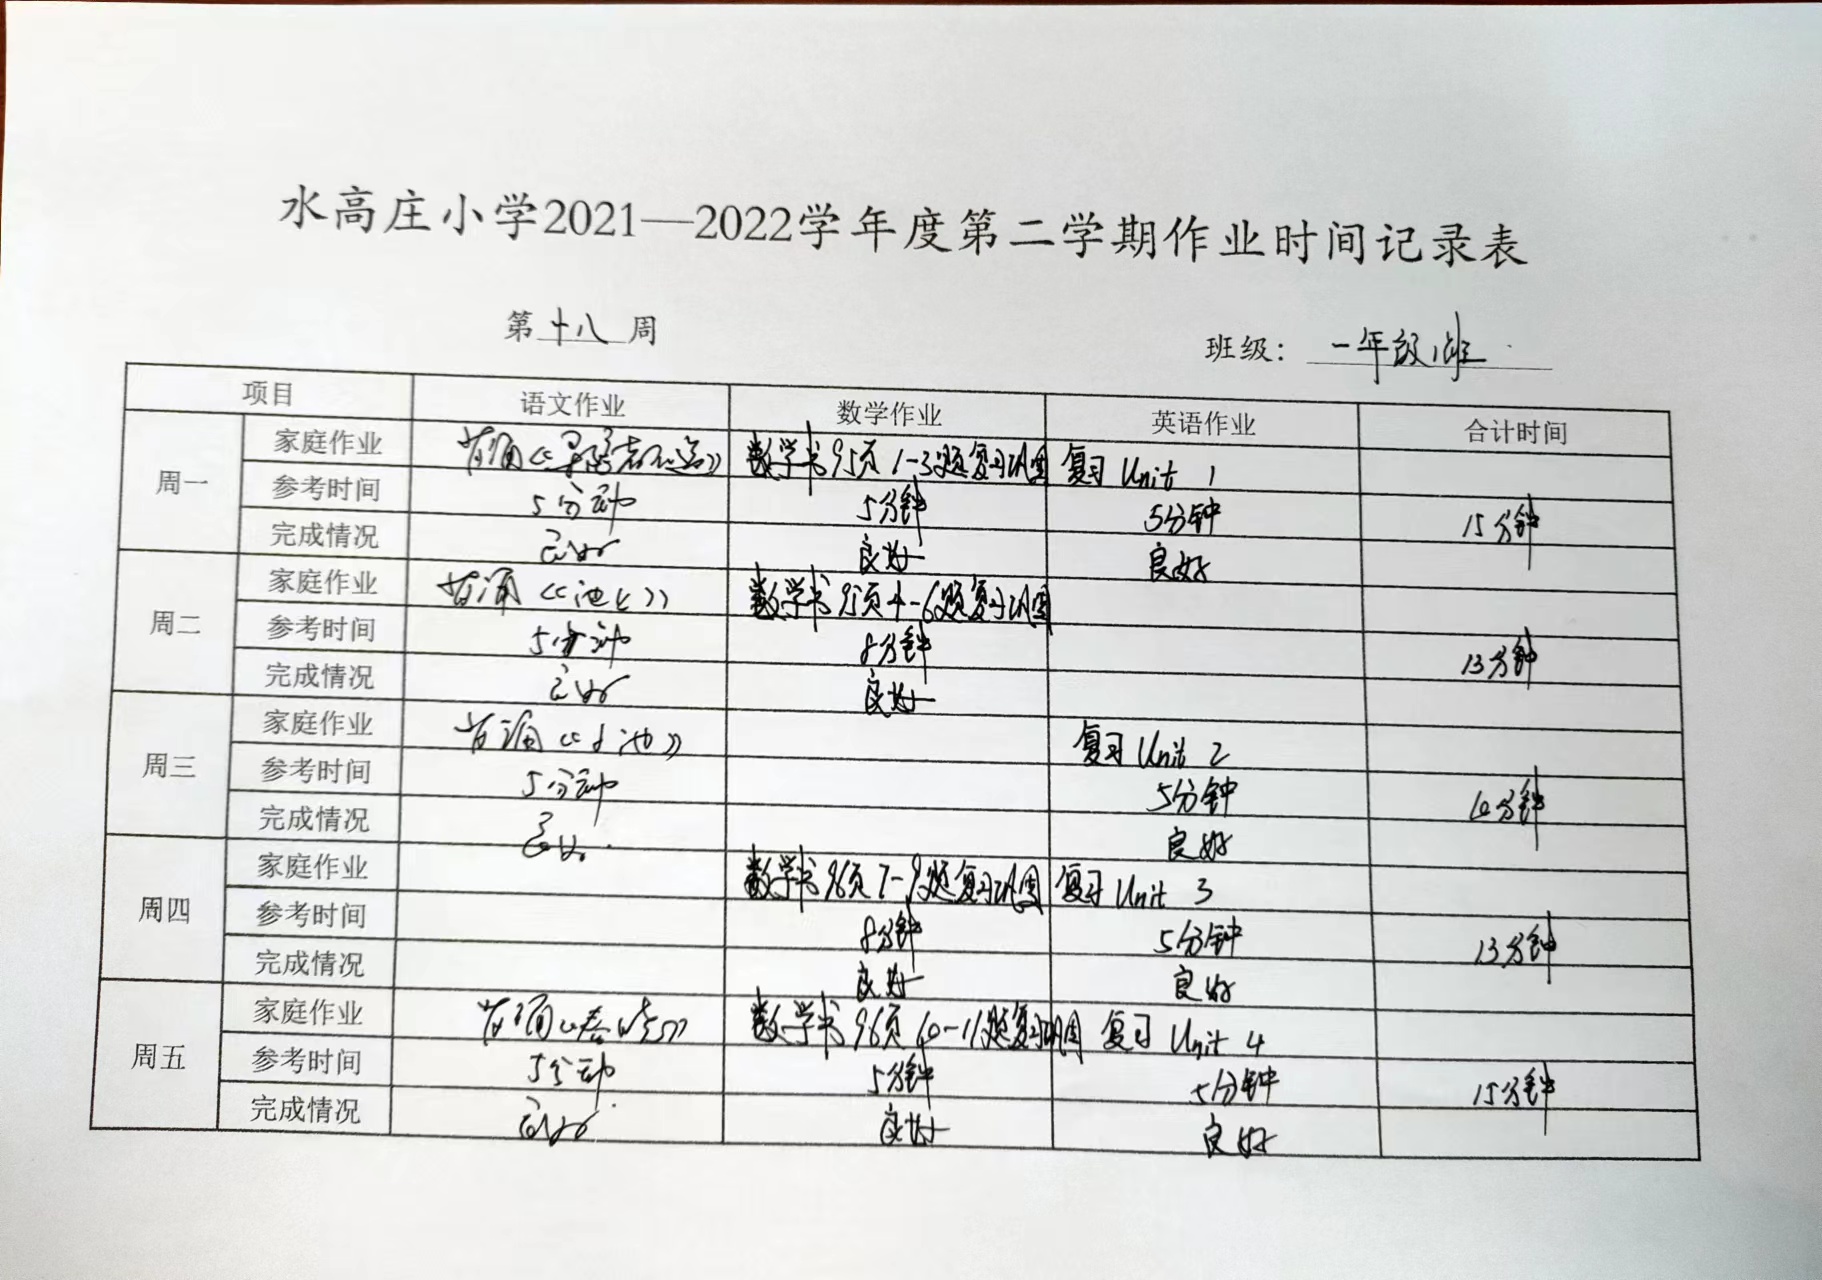 水高庄小学2021—2022学年度第二学期作业时间记录表
第 十八 周 班级： 一年级1班
项目 语文作业 数学作业 英语作业 合计时间
周一
家庭作业 背诵《 》 数学书95页1-3题复习巩固 复习 Unit 1
参考时间 5分钟 5分钟 5分钟 15分钟
完成情况 良好 良好 良好
周二
家庭作业 背诵《池上》 数学书95页4-6题复习巩固
参考时间 5分钟 8分钟 13分钟
完成情况 良好 良好
周三
家庭作业 背诵《小池》 复习 Unit 2
参考时间 5分钟 5分钟 10分钟
完成情况 良好 良好
周四
家庭作业 数学书96页7-9题复习巩固 复习 Unit 3
参考时间 8分钟 5分钟 13分钟
完成情况 良好 良好
周五
家庭作业 背诵《春晓》 数学书96页10-11题复习巩固 复习 Unit 4
参考时间 5分钟 5分钟 5分钟 15分钟
完成情况 良好 良好 良好